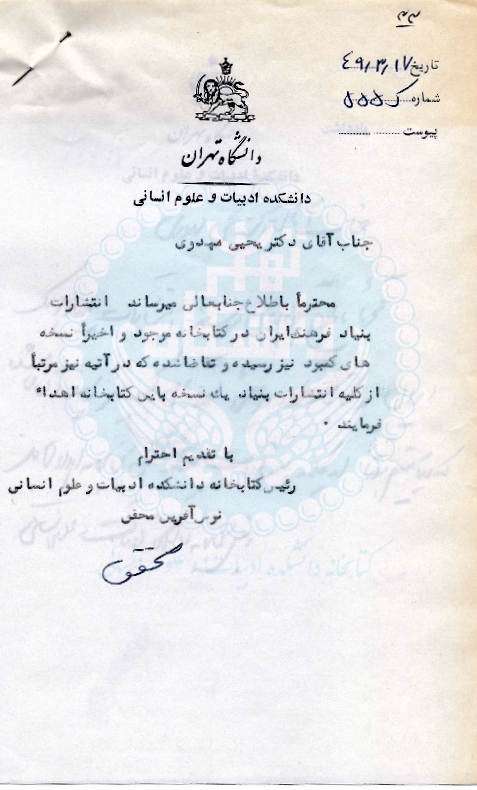 ۴۳
تاریخ ۴۹/۳/۱۷
شماره ک ۵۵۵
پیوست
دانشگاه تهران
دانشکده ادبیات و علوم انسانی
جناب آقای دکتر یحیی مهدوی
محترماً باطلاع جنابعالی میرساند انتشارات
بنیاد فرهنگ ایران در کتابخانه موجود و اخیراً نسخه
های کمبود نیز رسیده و تقاضا شده که در آتیه نیز مرتباً
از کلیه انتشارات بنیاد یك نسخه باین کتابخانه اهداء
فرمایند ۰
با تقدیم احترام
رئیس کتابخانه دانشکده ادبیات و علوم انسانی
نوش آفرین محقق
محقق
کتابخانه دانشکده ادبیات و